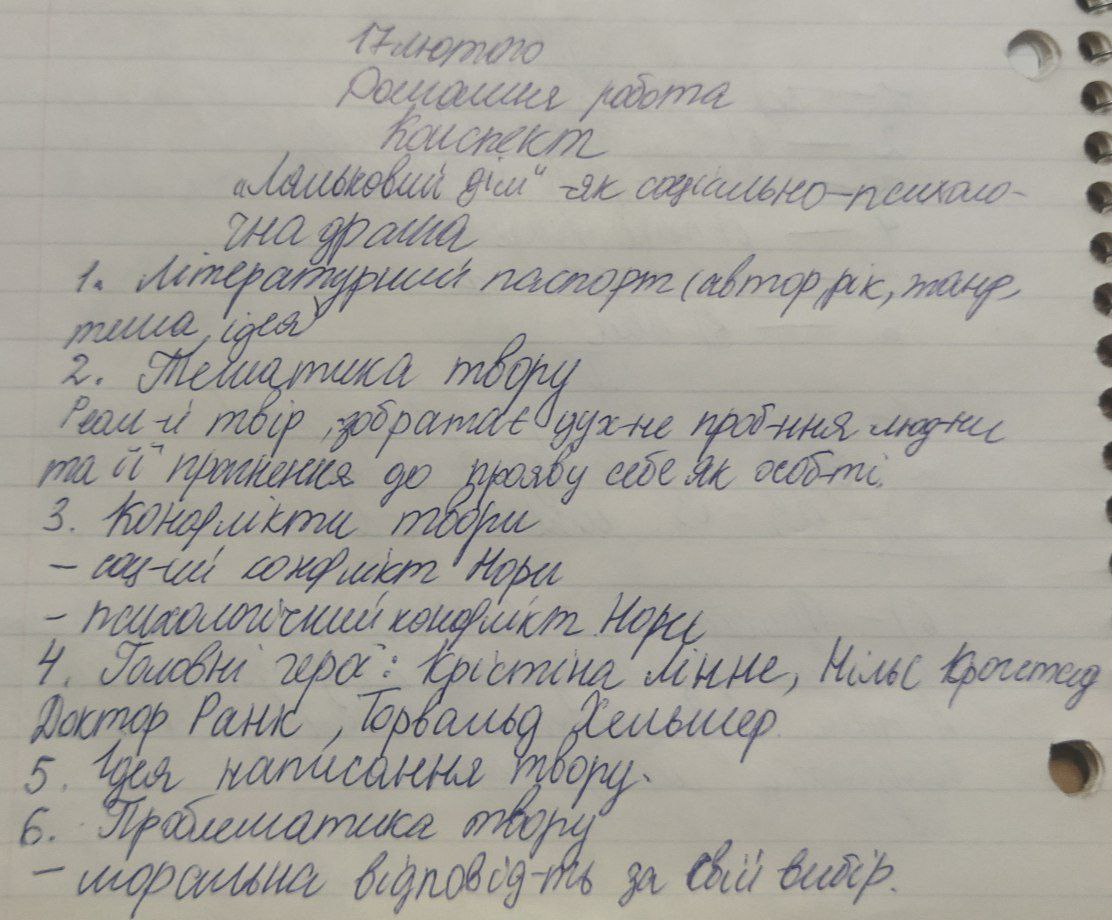 17 лютого
Домашня робота
Конспект
„Ляльковий дім" -як соціально-психоло-
чна драма
1. Літературний паспорт (автор, рік, жанр,
тема, ідея)
2. Тематика твору
Реал-й твір, зображає дух-не проб-ння люд-ни
та її прагнення до прояву себе як особ-ті.
3. Конфлікти твори
- соц-ий конфлікт Нори
- психологічний конфлікт Нори
4. Головні герої: Крістіна Лінне, Нільс Крогстад
Доктор Ранк, Торвальд Хельмер.
5. Ідея написання твору.
6. Проблематика твору
- моральна відповід-ть за свій вибір.